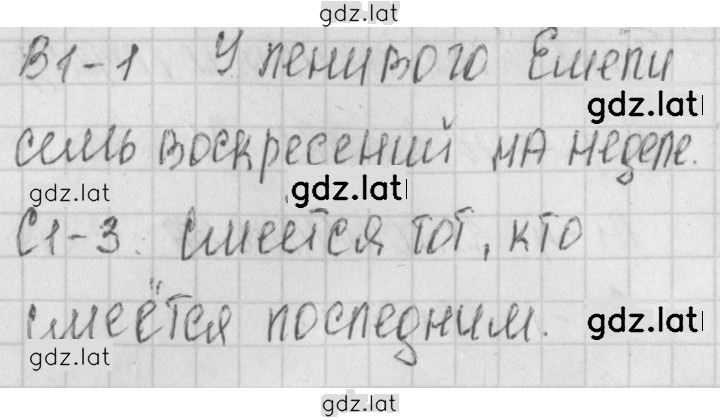 gdz.lat
В1-1 У ленивого Емели
gdz.lat
семь воскресений на неделе.
gdz.lat gdz.lat
С1-3. Смеётся тот, кто
смеётся последним.
gdz.lat
gdz.lat
gdz.lat